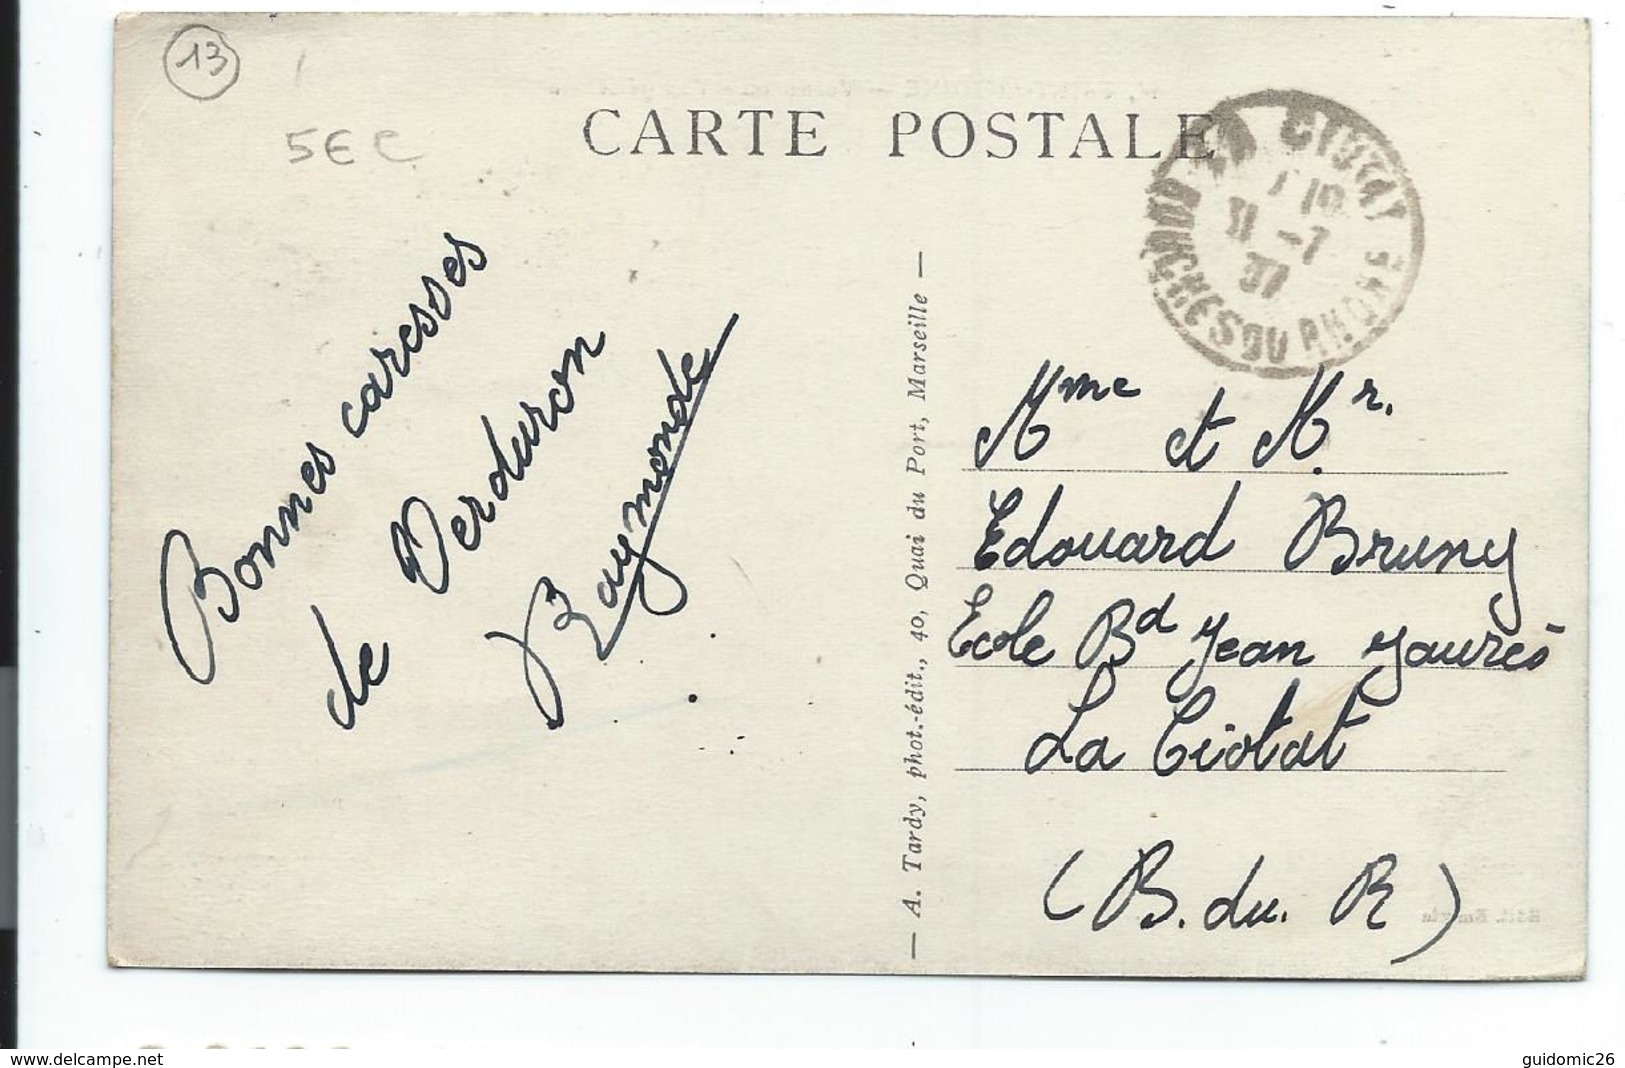 13
5 E C
CARTE POSTALE
LA CIOTAT
11 -7
37
BOUCHES DU RHONE
Bonnes caresses
de Verduron
Raymonde
— A. Tardy, phot.-édit., 40, Quai du Port, Marseille —
Mme et Mr.
Edouard Bruny
Ecole Bd Jean Jaurès
La Ciotat
(B. du. R)
www.delcampe.net
guidomic26